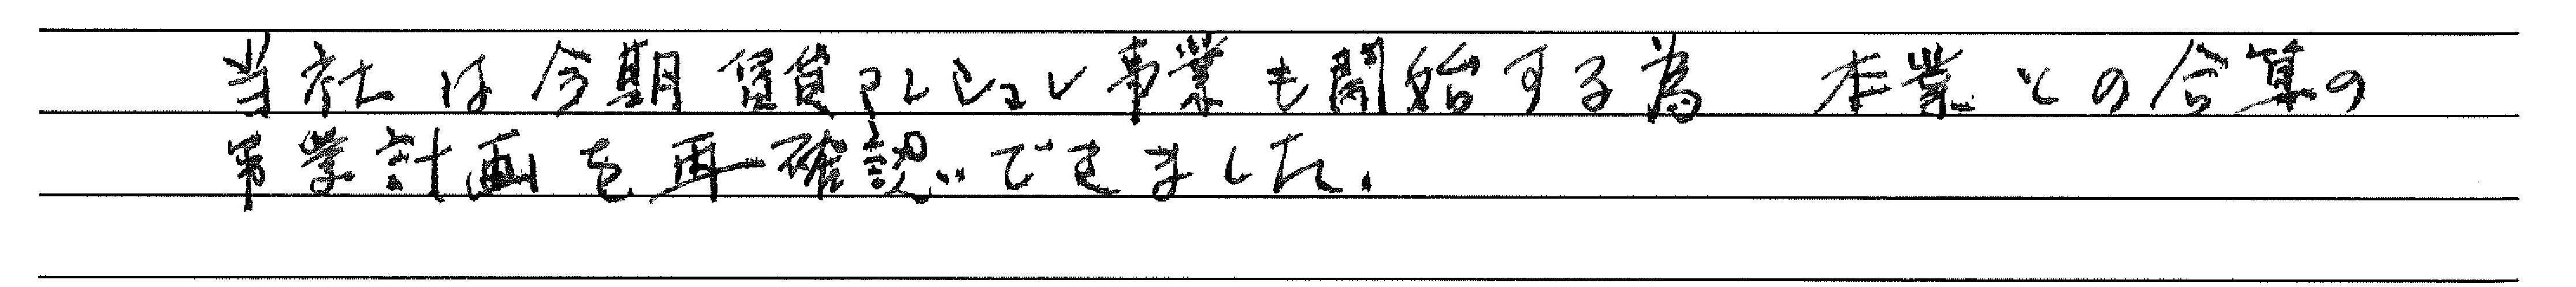 当社は今期賃貸マンション事業も開始する為 本業との合算の
事業計画を再確認できました。